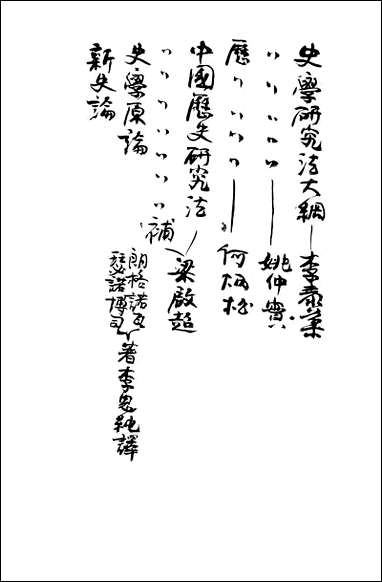 史學硏究法大綱—李泰棻
〃〃〃〃〃—姚仲實
歷〃〃〃〃—何炳松
中國歷史硏究法
〃〃〃〃〃〃〃補 梁啟超
史學原論 朗格諾瓦 瑟諾博司 著李思純譯
新史論